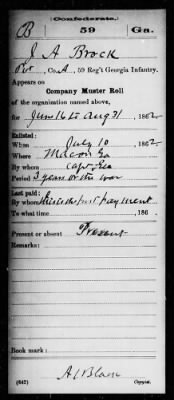 Confederate.
B 59 Ga.
J A Brock
Pvt, Co. A, 59 Reg't Georgia Infantry.
Appears on
Company Muster Roll
of the organization named above,
for June 16 to Aug 31 1862
Enlisted:
When July 10 1862
Where Macon Ga
By whom Capt
Period 3 years or the war
Last paid:
By whom this is the first payment
To what time , 186 .
Present or absent Present
Remarks:
Book mark:
(642) Copyist.